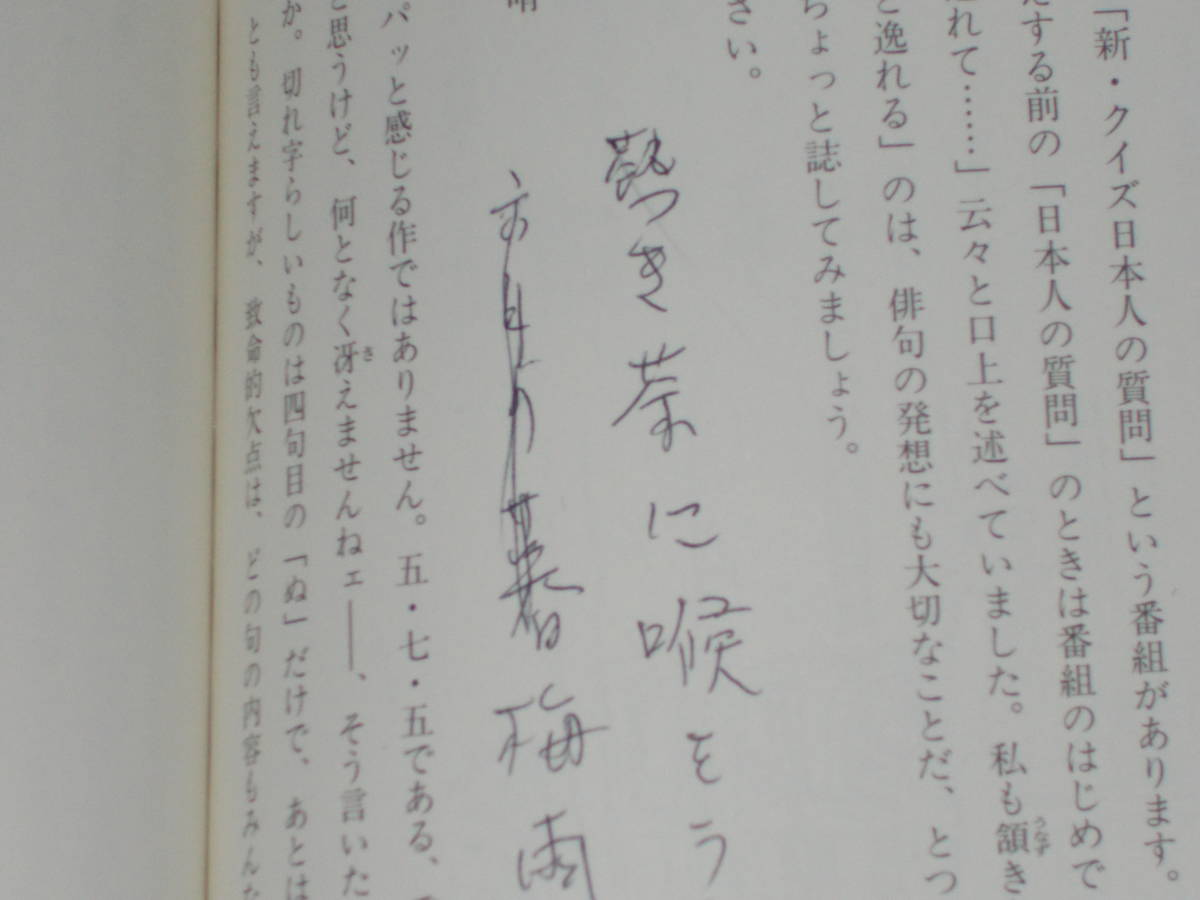 「新・クイズ日本人の質問」という番組があります。
する前の「日本人の質問」のときは番組のはじめで
れて……」云々と口上を述べていました。私も頷き
うなず
と逸れる」のは、俳句の発想にも大切なことだ、とつ
ちょっと誌してみましょう。
さい。
熱つき茶に喉をう
暮 梅雨
晴
パッと感じる作ではありません。五・七・五である、
と思うけど、何となく冴えませんねェ――、そう言いた
さ
か。切れ字らしいものは四句目の「ぬ」だけで、あとは
とも言えますが、致命的欠点は、どの句の内容もみんな